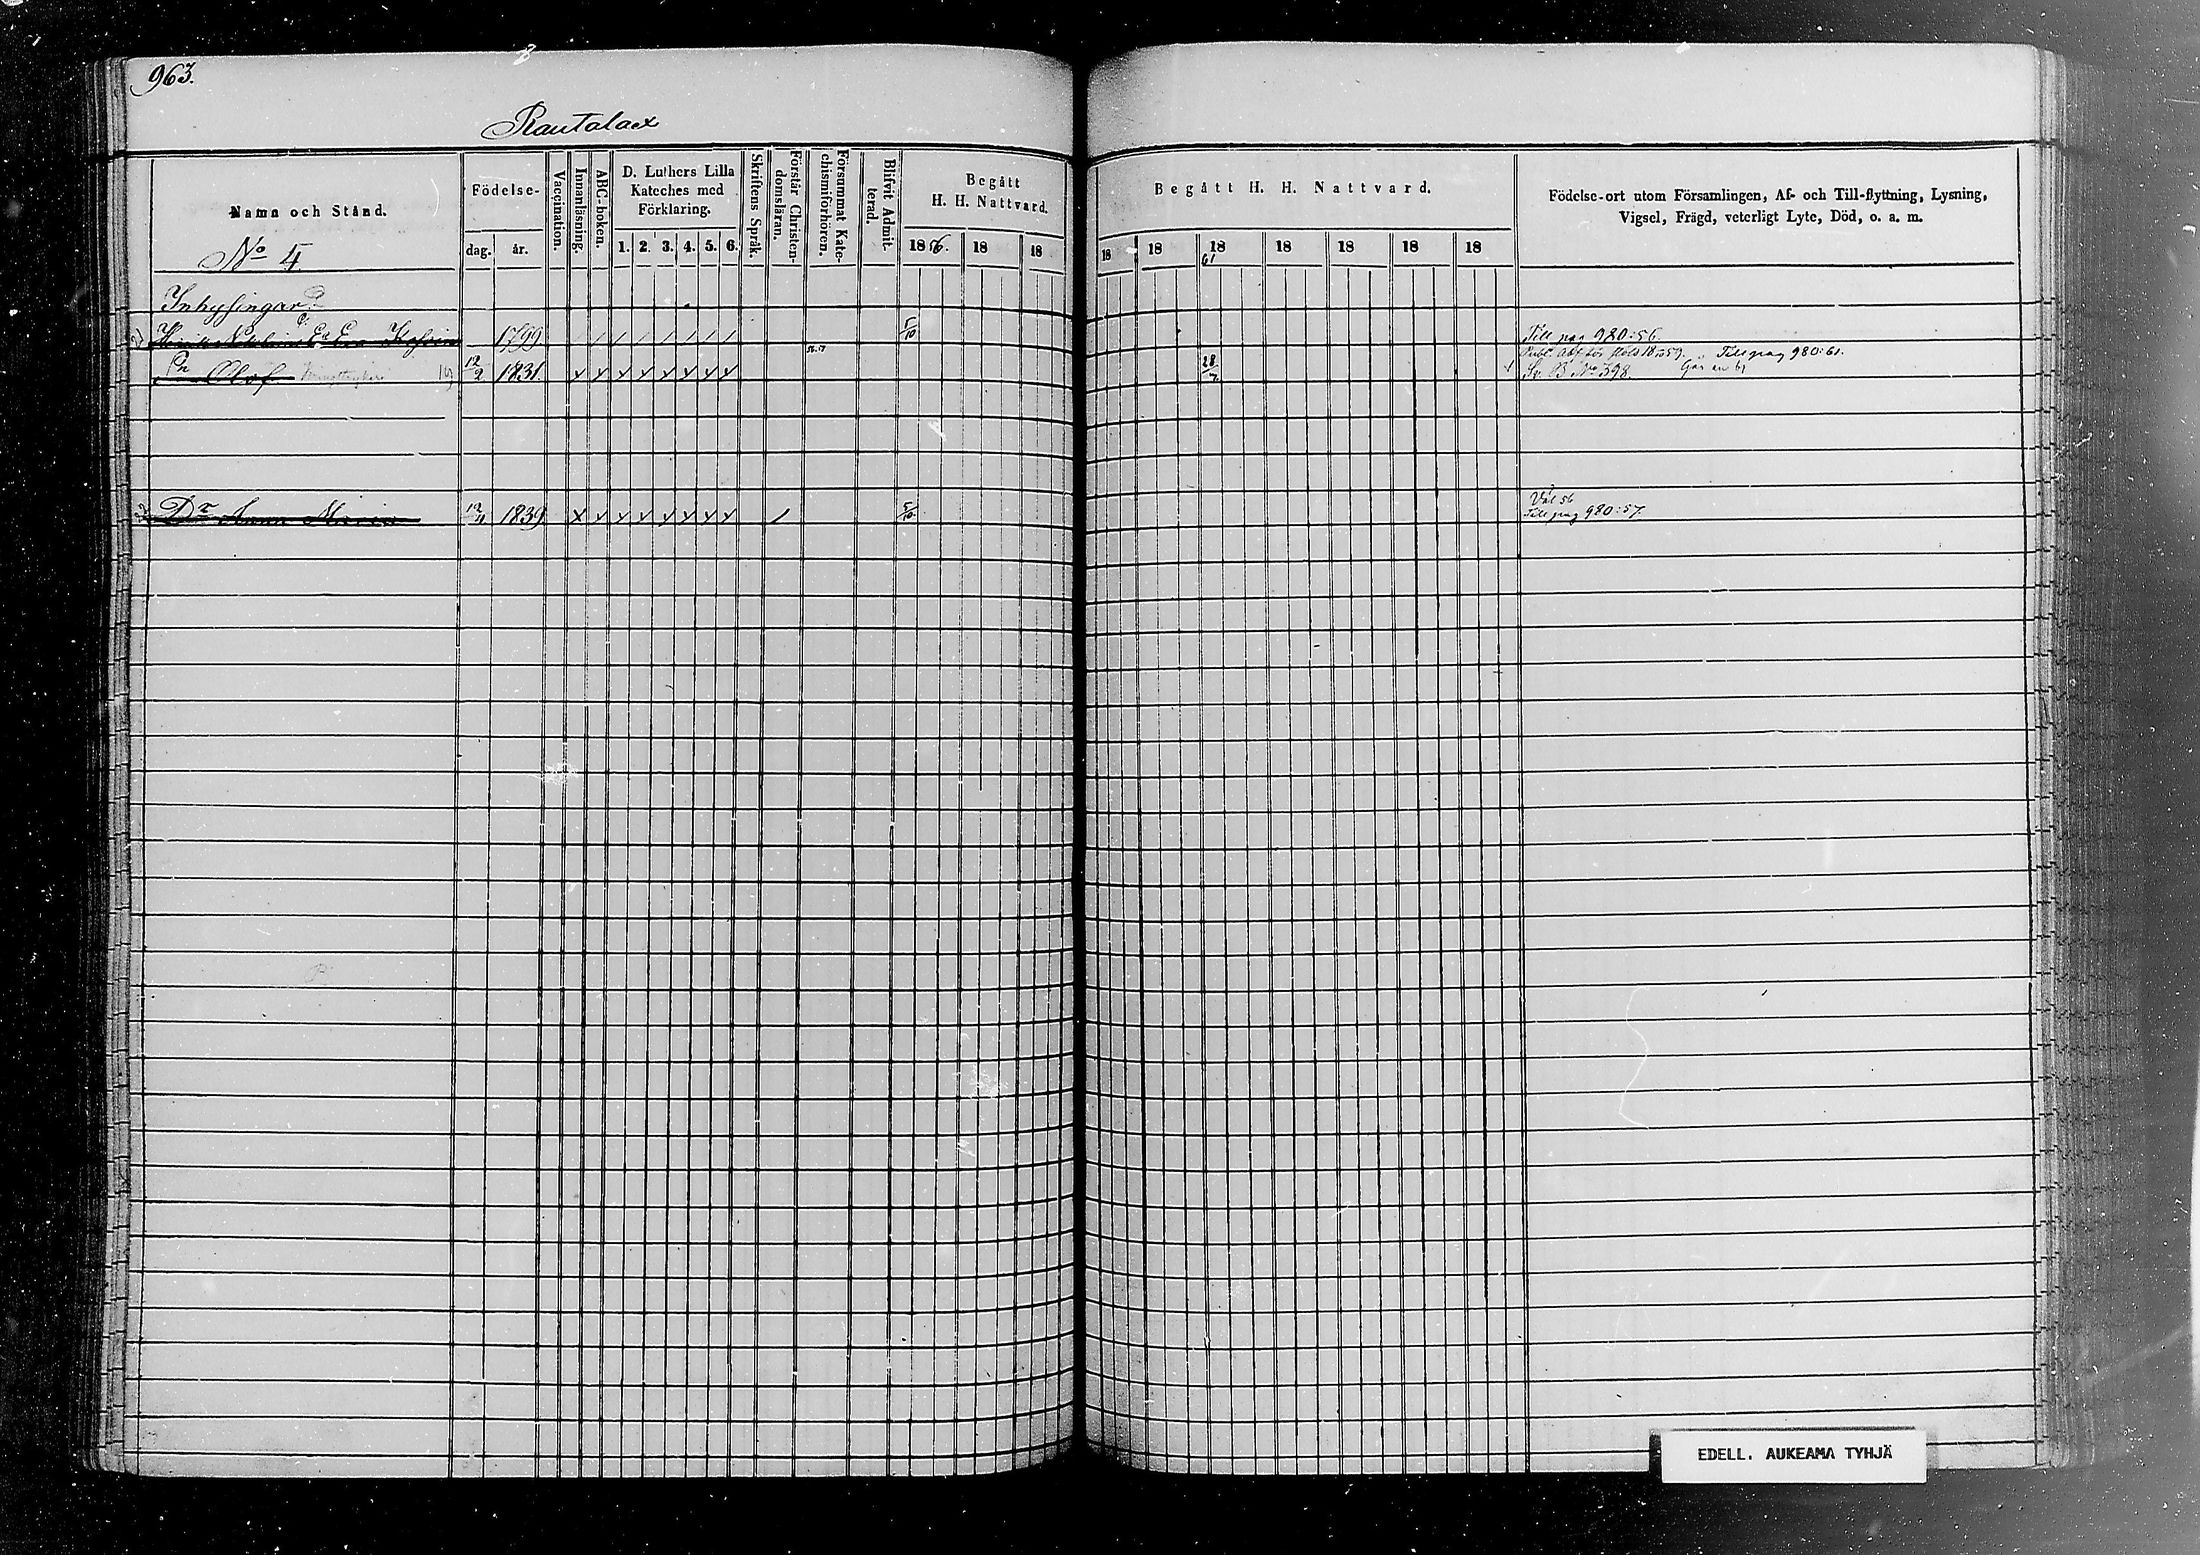 963.
Rantalaet
Namn och Stånd.
Födelse-
dag.
år.
Vaccination.
Innanläsning.
ABC-boken.
D. Luthers Lilla
Kateches med
Förklaring.
1. 2. 3. 4. 5. 6.
Skriftens Språk.
Förstår Christen-
domsläran.
Försummat Kate-
chismiförhören.
Blifvit Admit-
terad.
Begått
H. H. Nattvard.
1856. 18 18
Begått H. H. Nattvard.
18 18 18 18 18 18 18
61
Födelse-ort utom Församlingen, Af- och Till-flyttning, Lysning,
Vigsel, Frägd, veterligt Lyte, Död, o. a. m.
No 4
Inhysingar
1799 5/10 Till pag 980:56.
Olof 12/2 1831. 56.57 28/7 Till pag 980:61.
No 398.
Dr Anna Maria 12/11 1839 5/10 Till pag 980:57.
EDELL. AUKEAMA TYHJÄ